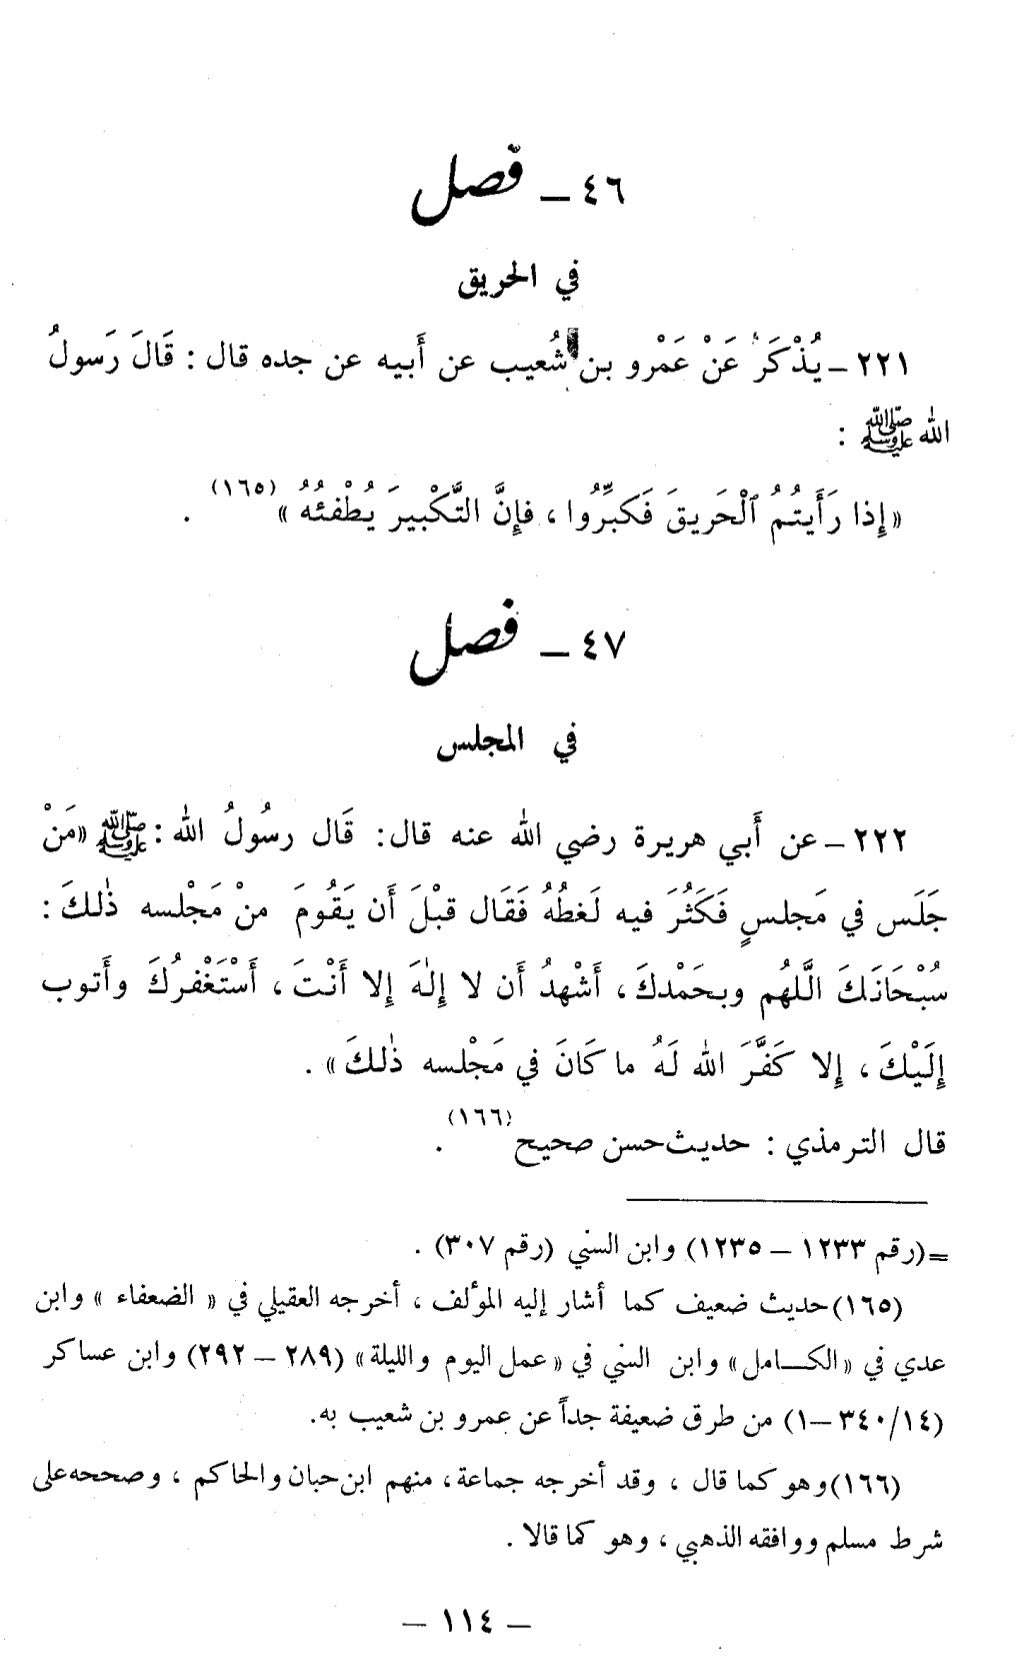 ٤٦ ـ فصل
في الحريق
٢٢١ ـ يُذْكَرُ عَنْ عَمْرو بن شُعيب عن أَبيه عن جده قال : قَالَ رَسولُ
الله ﷺ :
« إِذا رَأَيتُمُ ٱلْحَريقَ فَكبِّرُوا ، فإِنَّ التَّكْبيرَ يُطْفئُهُ » (١٦٥) .
٤٧ ـ فصل
في المجلس
٢٢٢ ـ عن أَبي هريرة رضي الله عنه قال: قَال رسُولُ الله ﷺ: «مَنْ
جَلَس في مَجلسٍ فَكَثُرَ فيه لَغطُهُ فَقَال قبْلَ أَن يَقُومَ منْ مَجْلسه ذٰلكَ :
سُبْحَانَكَ الَّلهُم وبحَمْدكَ ، أَشْهدُ أَن لا إِلٰهَ إِلا أَنْتَ ، أَسْتَغْفرُكَ وأَتوب
إِلَيْكَ ، إِلا كَفَّرَ الله لَهُ ما كَانَ في مَجْلسه ذٰلكَ» .
قال الترمذي : حديث حسن صحيح (١٦٦) .
=(رقم ١٢٣٣ ـ ١٢٣٥) وابن السني (رقم ٣٠٧) .
(١٦٥) حديث ضعيف كما أشار إليه المؤلف ، أخرجه العقيلي في « الضعفاء » وابن
عدي في «الكـــامل» وابن السني في « عمل اليوم والليلة» (٢٨٩ ـ ٢٩٢) وابن عساكر
(١٤/٣٤٠ ـ١) من طرق ضعيفة جداً عن عمرو بن شعيب به.
(١٦٦) وهو كما قال ، وقد أخرجه جماعة، منهم ابن حبان والحاكم ، وصححه على
شرط مسلم ووافقه الذهبي ، وهو كما قالا .
ـ ١١٤ ـ